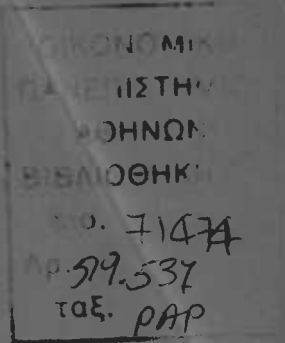 ΟΙΚΟΝΟΜΙΚΟ
ΠΑΝΕΠΙΣΤΗΜΙΟ
ΑΘΗΝΩΝ
ΒΙΒΛΙΟΘΗΚΗ
εισ. 71474
Αρ. 519.537
ταξ. PAP